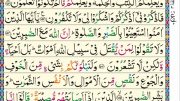 وَيُعَلِّمُكُمُ الْكِتٰبَ وَالْحِكْمَةَ وَيُعَلِّمُكُمْ مَّا لَمْ تَكُوْنُوْا تَعْلَمُوْنَ
فَاذْكُرُوْنِيْٓ اَذْكُرْكُمْ وَاشْكُرُوْا لِيْ وَلَا تَكْفُرُوْنِ يٰٓاَيُّهَا الَّذِيْنَ
اٰمَنُوا اسْتَعِيْنُوْا بِالصَّبْرِ وَالصَّلٰوةِ اِنَّ اللّٰهَ مَعَ الصّٰبِرِيْنَ
وَلَا تَقُوْلُوْا لِمَنْ يُّقْتَلُ فِيْ سَبِيْلِ اللّٰهِ اَمْوَاتٌ بَلْ اَحْيَآءٌ
وَّلٰكِنْ لَّا تَشْعُرُوْنَ وَلَنَبْلُوَنَّكُمْ بِشَيْءٍ مِّنَ الْخَوْفِ
وَالْجُوْعِ وَنَقْصٍ مِّنَ الْاَمْوَالِ وَالْاَنْفُسِ وَالثَّمَرٰتِ